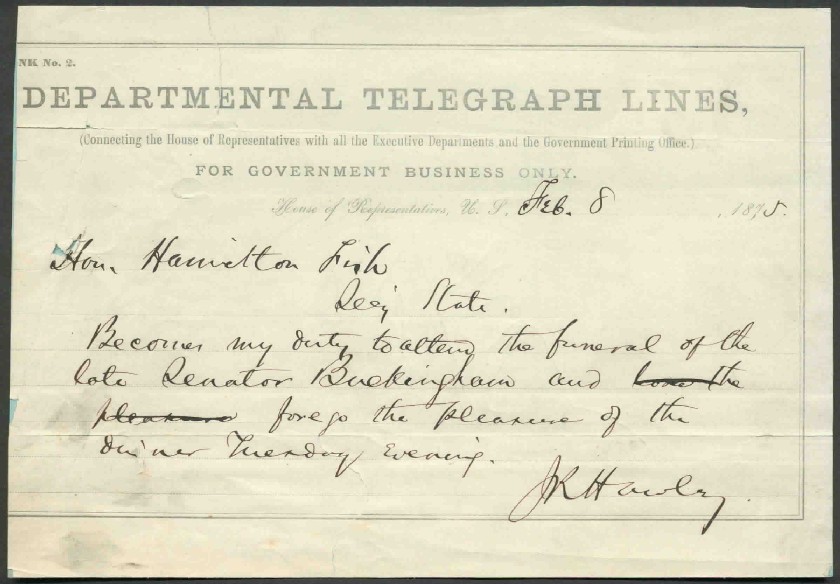 NK No. 2.
DEPARTMENTAL TELEGRAPH LINES,
(Connecting the House of Representatives with all the Executive Departments and the Government Printing Office.)
FOR GOVERNMENT BUSINESS ONLY.
House of Representatives, U. S. Feb. 8, 1875.
Hon. Hamilton Fish
Secy State.
Becomes my duty to attend the funeral of the
late Senator Buckingham and the
pleasure forego the pleasure of the
dinner Tuesday evening.
JRHawley.